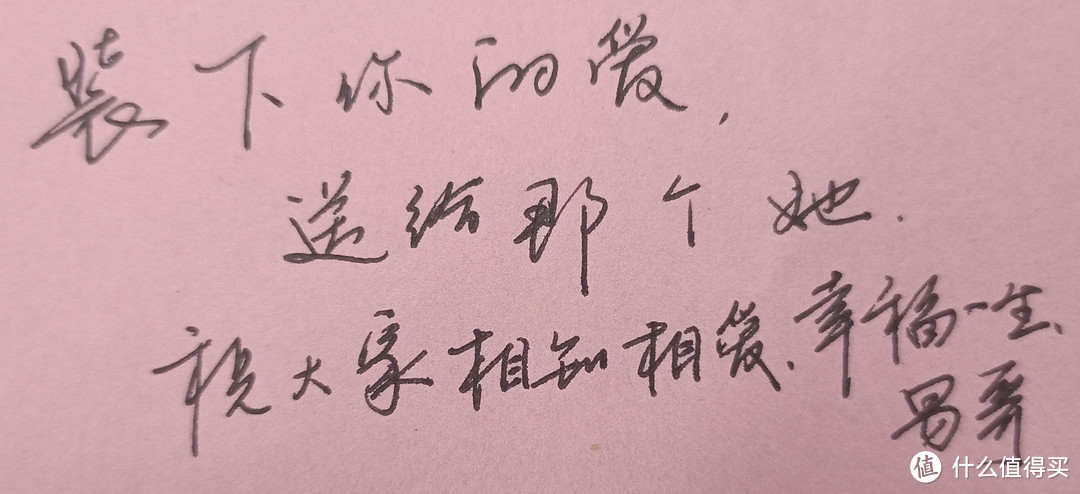 装下你的爱,
送给那个她.
祝大家相知相爱、幸福一生、
昂哥
值 什么值得买